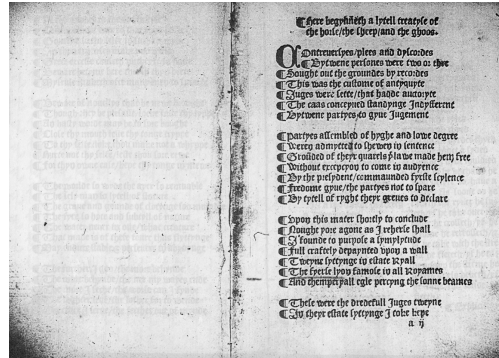 ¶Here begynneth a lytell treatyse of
the horse/the sheep/and the ghoos.
COntreuersyes/plees and dyscordes
¶Bytwene persones were two or thre
¶Sought out the groundes by recordes
¶This was the custome of antyquyte
¶Iuges were sette/that hadde auctoryte
¶The caas conceyued standynge Indyfferent
¶Bytwene partyes to gyue Iugement
¶Partyes assembled of hyghe and lowe degree
¶Weren admytted to shewen in sentence
¶Groūded of theyr quarels þͤ lawe made hem free
¶Without excepcyon to come in audyence
¶By the presydent/commaunded fyrste scylence
¶Fredome gyue/the partyes not to spare
¶By tytell of ryght theyr greues to declare
¶Upon this mater shortly to conclude
¶Nought yore agone as I reherse shall
¶I founde to purpose a symylytude
¶Full craftely depaynted vpon a wall
¶Tweyne syttynge in estate Ryall
¶The fyerse lyon famose in all Royames
¶And themperyall egle percyng the sonne beames
¶These were the dredefull Iuges tweyne
¶In theyr estate syttynge I toke kepe
a ij